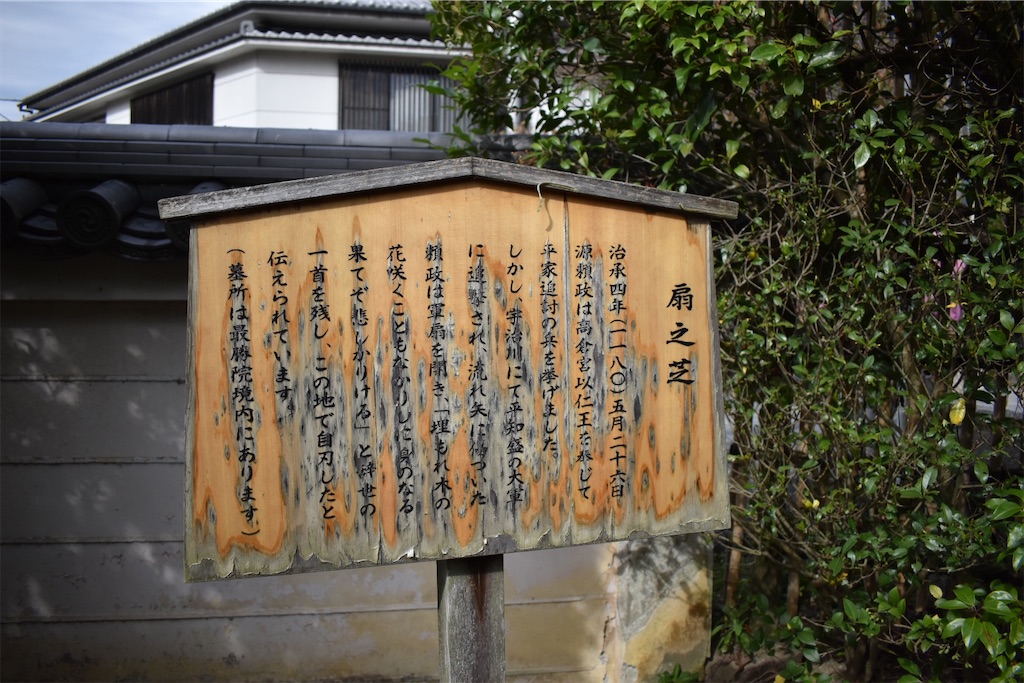 扇之芝
治承四年(一一八〇)五月二十六日
源頼政は高倉宮以仁王を奉じて
平家追討の兵を挙げました。
しかし、宇治川にて平知盛の大軍
に追撃され、流れ矢に傷ついた
頼政は軍扇を開き「埋もれ木の
花咲くこともなかりしに身のなる
果てぞ悲しかりける」と辞世の
一首を残し、この地で自刃したと
伝えられています。
(墓所は最勝院境内にあります。)